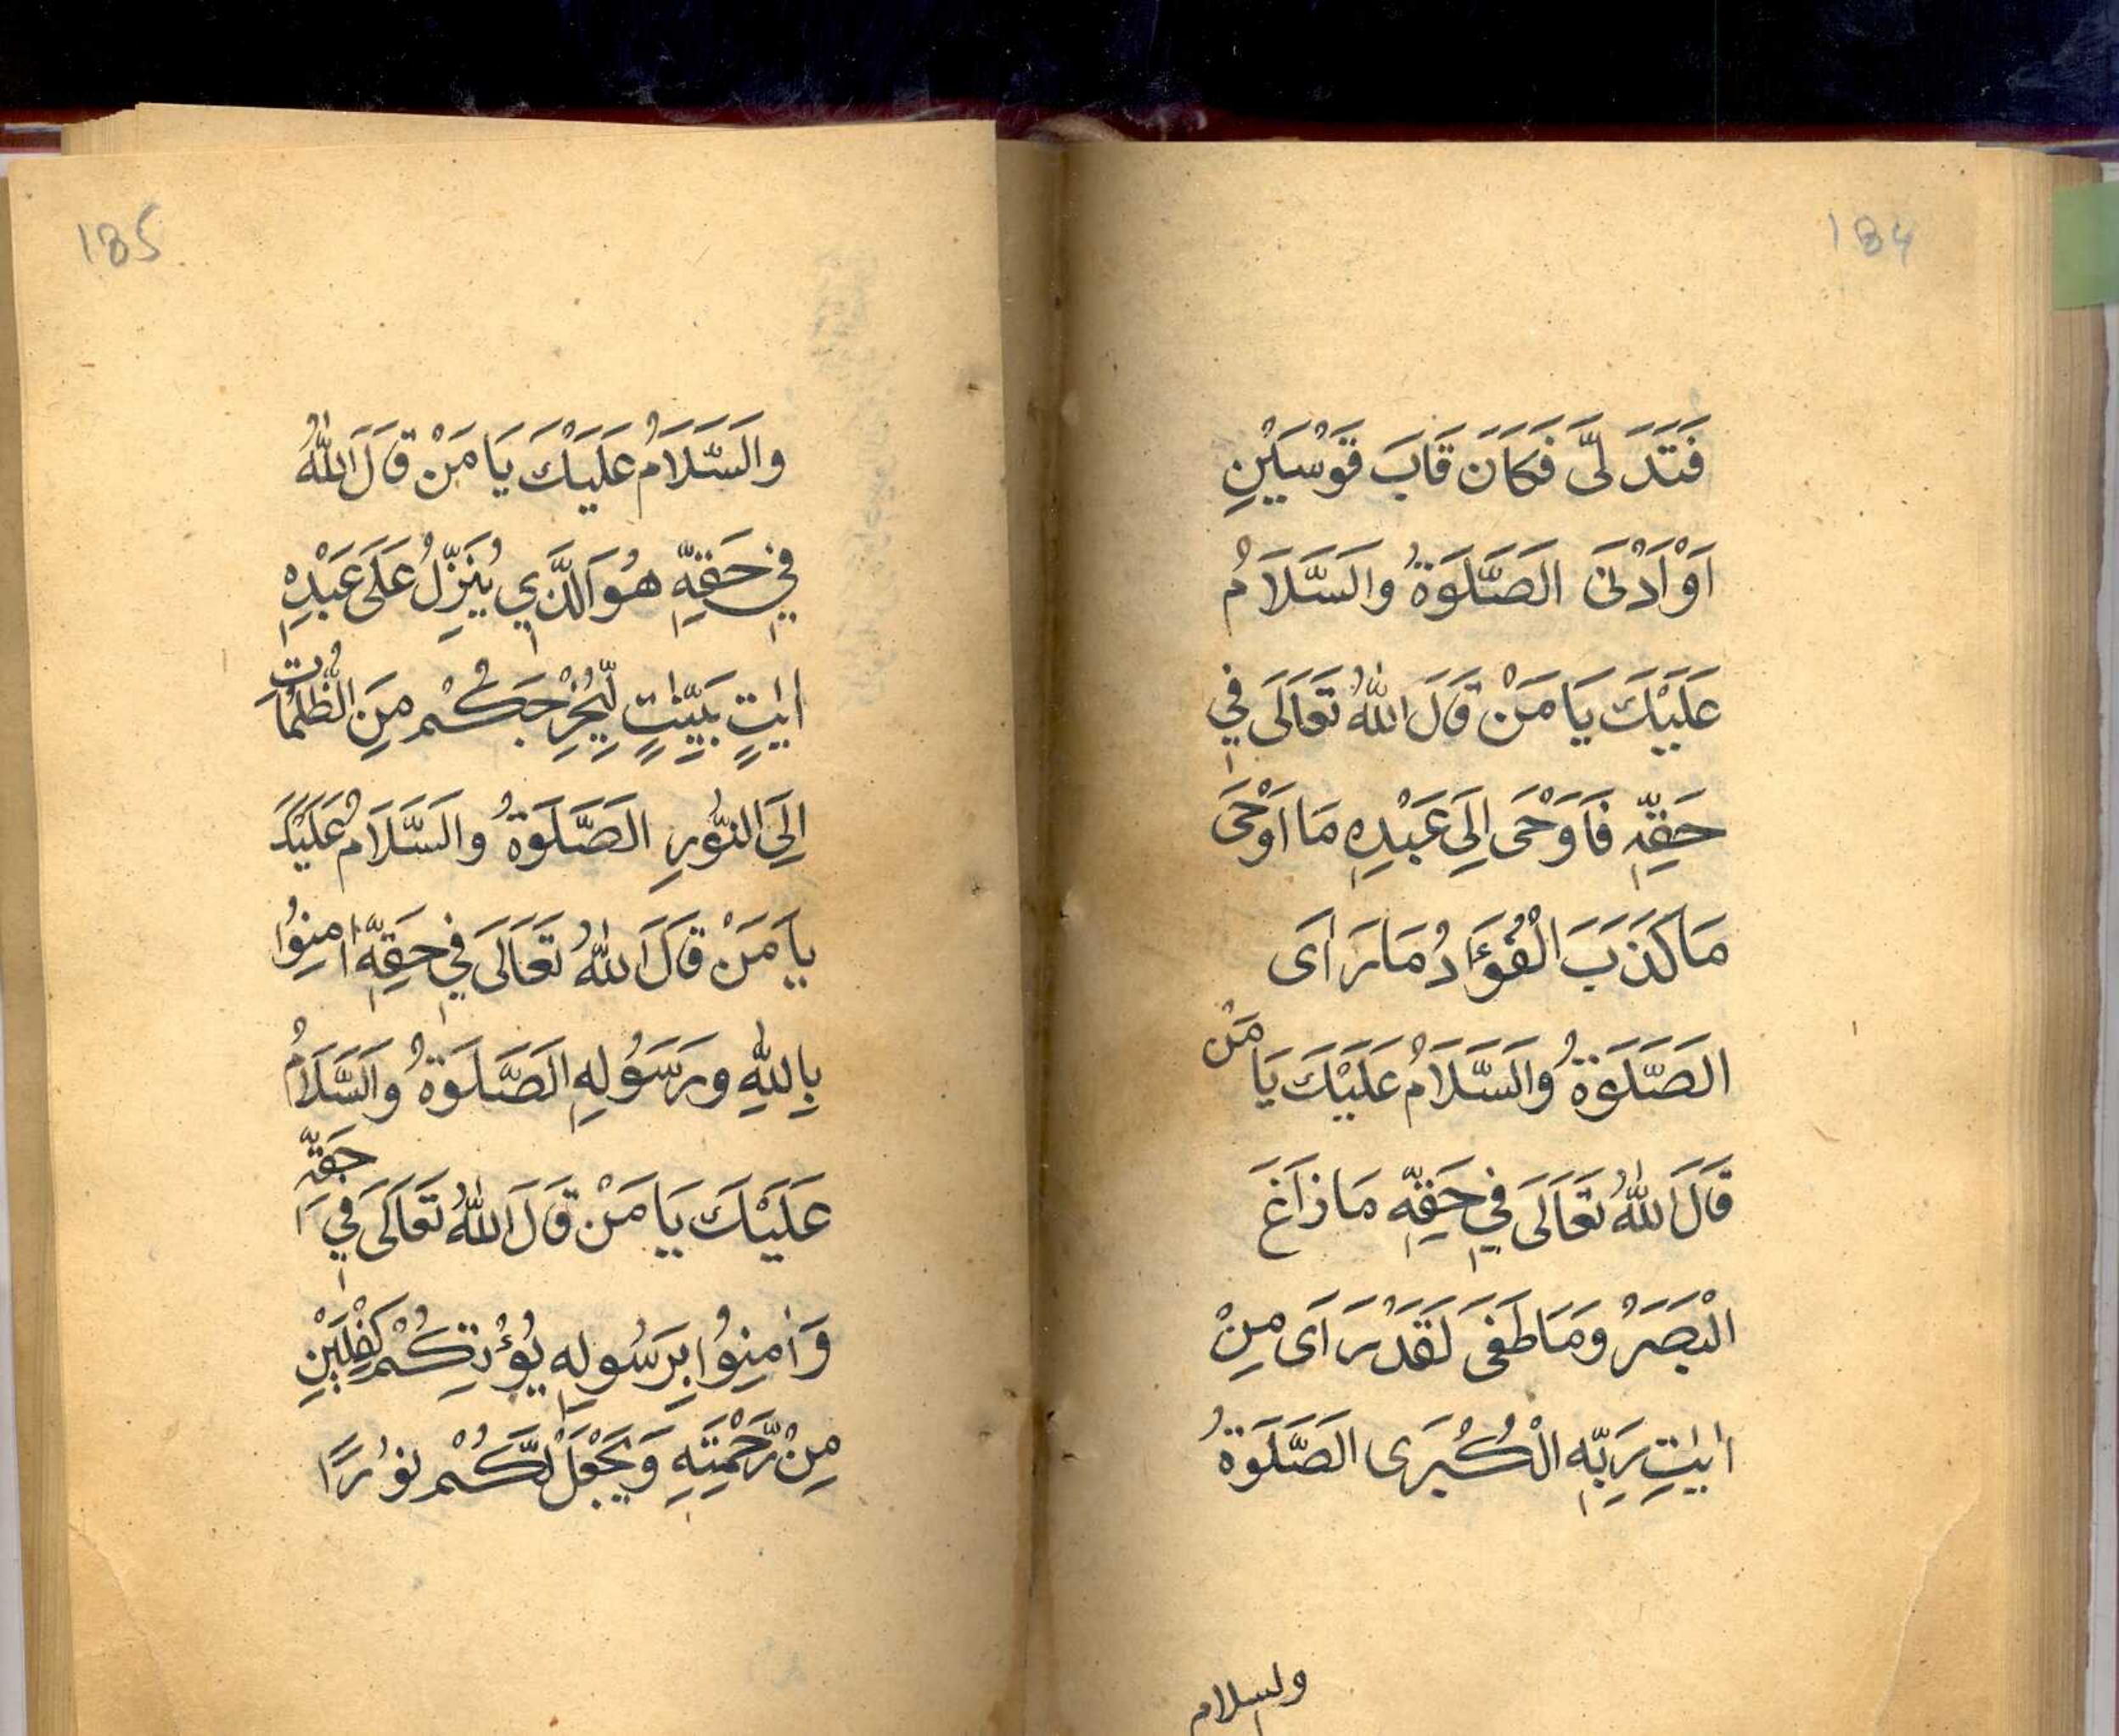 184
فَتَدَلّٰى فَكَانَ قَابَ قَوْسَيْنِ
اَوْ اَدْنٰى الصَّلَوةُ وَالسَّلَامُ
عَلَيْكَ يَا مَنْ قَالَ اللّٰهُ تَعَالَى فِي
حَقِّهٖ فَاَوْحَى اِلَى عَبْدِهٖ مَا اَوْحَى
مَا كَذَبَ الْفُؤَادُ مَا رَاَى
الصَّلَوةُ وَالسَّلَامُ عَلَيْكَ يَا مَنْ
قَالَ اللّٰهُ تَعَالَى فِي حَقِّهٖ مَا زَاغَ
الْبَصَرُ وَمَا طَغَى لَقَدْ رَاَى مِنْ
اٰيٰتِ رَبِّهِ الْكُبْرَى الصَّلَوةُ
والسلام
185
وَالسَّلَامُ عَلَيْكَ يَا مَنْ قَالَ اللّٰهُ
فِي حَقِّهٖ هُوَ الَّذِي يُنَزِّلُ عَلَى عَبْدِهٖ
اٰيٰتٍ بَيِّنٰتٍ لِّيُخْرِجَكُمْ مِنَ الظُّلُمَاتِ
اِلَى النُّوْرِ الصَّلَوةُ وَالسَّلَامُ عَلَيْكَ
يَا مَنْ قَالَ اللّٰهُ تَعَالَى فِي حَقِّهٖ اٰمِنُوْا
بِاللّٰهِ وَرَسُوْلِهِ الصَّلَوةُ وَالسَّلَامُ
عَلَيْكَ يَا مَنْ قَالَ اللّٰهُ تَعَالَى فِي حَقِّهٖ
وَاٰمِنُوْا بِرَسُولِهٖ يُؤْتِكُمْ كِفْلَيْنِ
مِنْ رَّحْمَتِهٖ وَيَجْعَلْ لَّكُمْ نُوْرًا